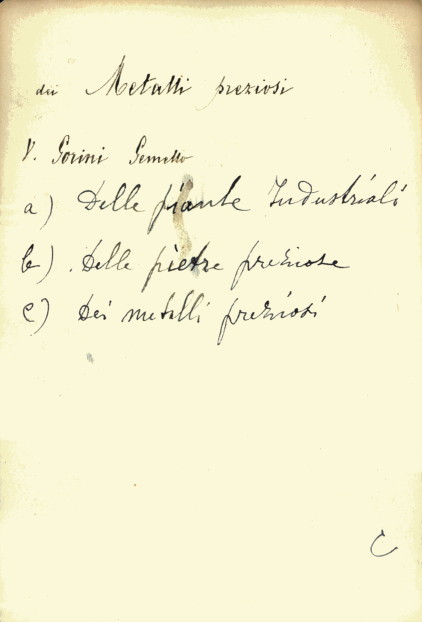 dei Metalli preziosi
V. Gorini Gemello
a) Delle piante Industriali
b) . Delle pietre preziose
c) Dei metalli preziosi
C